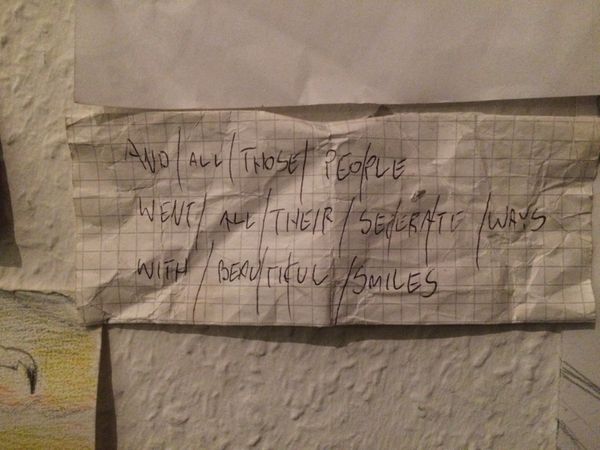 AND/ALL/THOSE/PEO/PLE
WENT/ALL/THEIR/SE/PER/ATE/WAYS
WITH/BEAU/TI/FUL/SMILES